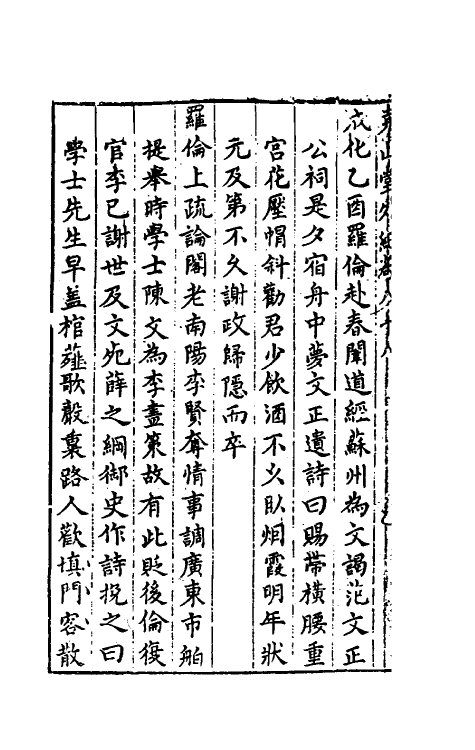 堯山堂外紀卷八十六
成化乙酉羅倫赴春闈道經蘇州為文謁范文正
公祠是夕宿舟中夢文正遺詩曰賜帶橫腰重
宮花壓帽斜勸君少飲酒不久臥烟霞明年狀
元及第不久謝政歸隱而卒
羅倫上疏論閣老南陽李賢奪情事調廣東市舶
提舉時學士陳文為李畫策故有此貶後倫復
官李已謝世及文死薛之綱御史作詩挽之曰
學士先生早蓋棺薤歌聲裏路人歡填門客散